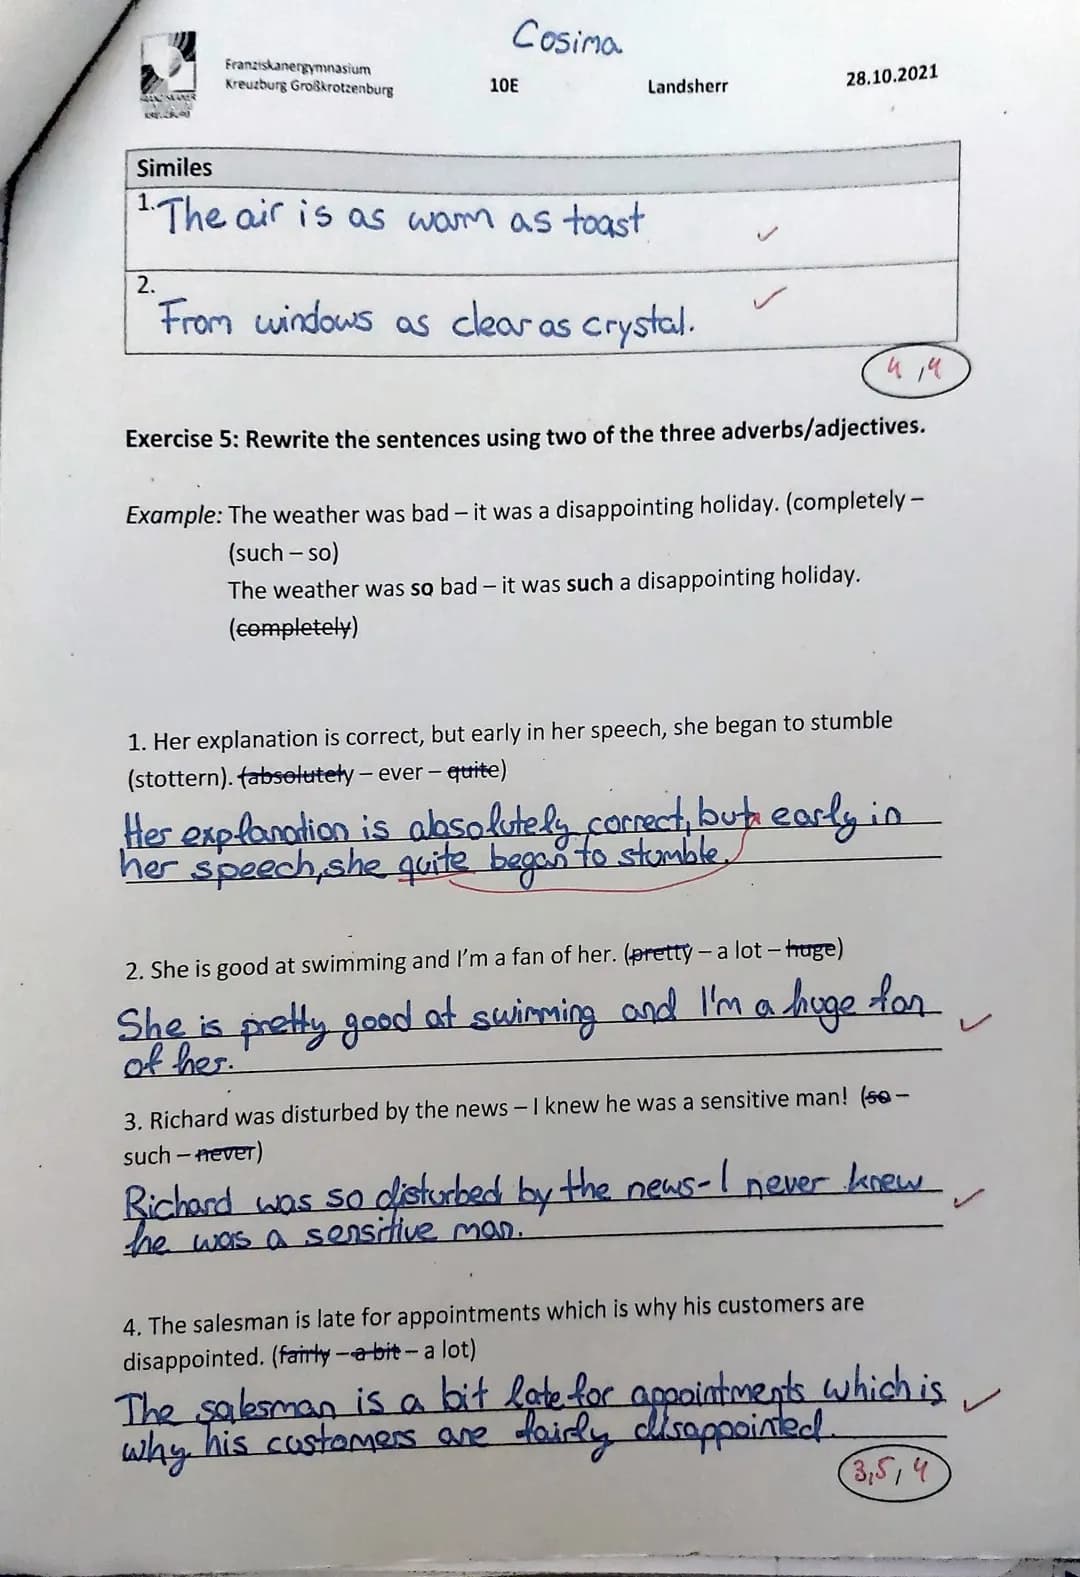 Cosima
Franziskanergymnasium
Kreuzburg Großkrotzenburg
10E
Landsherr
28.10.2021
FRANZISKANER
KREUZBURG
Similes
1. The air is as warm as toast
2.
From windows as clear as crystal.
4,4
Exercise 5: Rewrite the sentences using two of the three adverbs/adjectives.
Example: The weather was bad – it was a disappointing holiday. (completely –
(such – so)
The weather was so bad – it was such a disappointing holiday.
(completely)
1. Her explanation is correct, but early in her speech, she began to stumble
(stottern). (absolutely – ever – quite)
Her explanation is absolutely correct, but early in
her speech, she quite began to stumble.
2. She is good at swimming and I'm a fan of her. (pretty – a lot – huge)
She is pretty good at swimming and I'm a huge fan
of her.
3. Richard was disturbed by the news – I knew he was a sensitive man! (so –
such – never)
Richard was so disturbed by the news - I never knew
he was a sensitive man.
4. The salesman is late for appointments which is why his customers are
disappointed. (fairly – a bit – a lot)
The salesman is a bit late for appointments which is
why his customers are fairly disappointed.
3,5,4